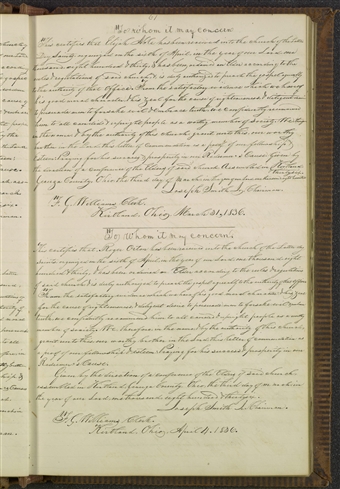 61
To whom it may concern
This certifies that Elijah Able has been received into the church of the Latter
day Saints organized on the sixth of April in the year of our Lord one
thousand eight hundred & thirty & has been ordained an Elder according to the
rules & regulations of said church & is duly authorized to preach the gospel agreeably
to the authority of that Office. From the satisfactory evidence which we have of
his good moral character & his zeal for the cause of righteousness & diligent desire
to persuade men to forsake evil & embrace truth we confidently recommend
him to all candid & upright people as a worthy member of society. We therefore
in the name & by the authority of this church grant unto this, our worthy
brother in the Lord, this letter of commendation as a proof of our fellowship &
Esteem: Praying for his success & prosperity in our Redeemers Cause. Given by
the direction of a conference of the Elders of said Church Assembled in Kirtland
Geauga County Ohio the third day of March in the year of our Lord
Joseph Smith Jr. Chairman.
F. G. Williams Clerk.
Kirtland Ohio, March 31, 1836.
To whom it may concern
This certifies that Roger Orton has been received into the church of the Latter day
Saints organized on the sixth of April in the year of our Lord one thousand eight
hundred & thirty & has been ordained an Elder according to the rules & regulations
of said church & is duly authorized to preach the gospel agreeably to the authority of that Office
From the satisfactory evidence which we have of his good moral character & his zeal
for the cause of righteousness & diligent desire to persuade men to forsake evil & embrace
truth we confidently recommend him to all candid & upright people as a worthy
member of society. We therefore in the name & by the authority of this church,
grant unto this our worthy brother in the Lord this letter of commendation as
a proof of our fellowship & Esteem: Praying for his success & prosperity in our
Redeemers Cause.
Given by the direction of a conference of the Elders of said church
assembled in Kirtland Geauga County Ohio the third day of March in
the year of our Lord one thousand eight hundred & thirty six.
Joseph Smith Jr. Chairman.
F. G. Williams Clerk.
Kirtland, Ohio, April 4, 1836.